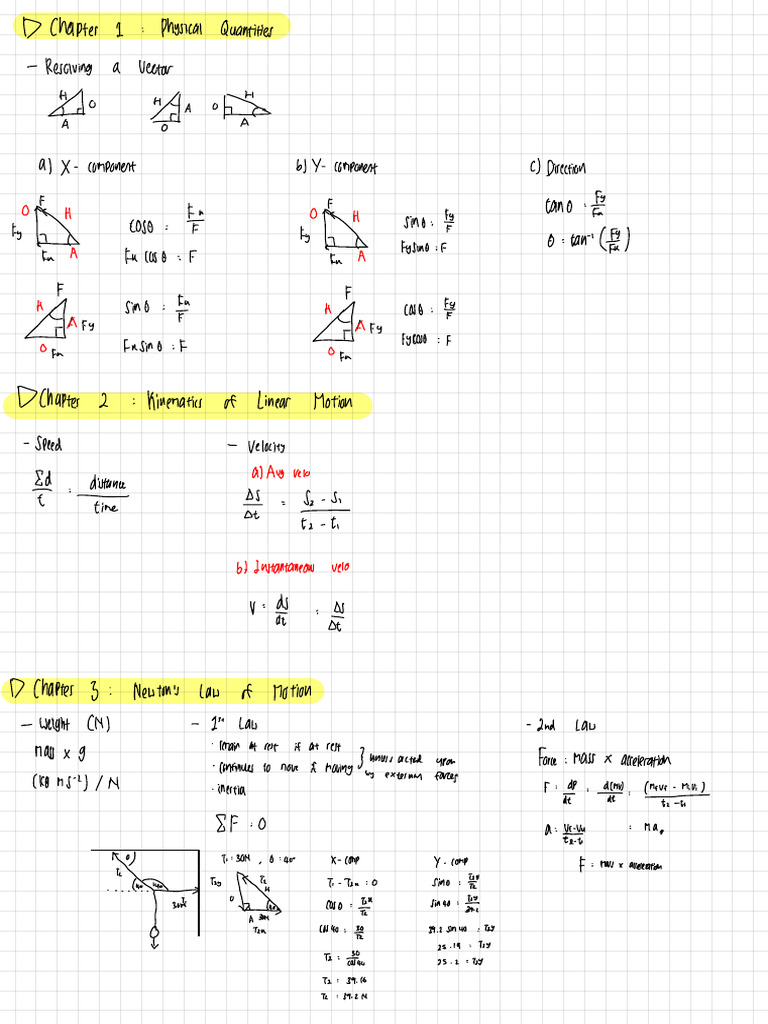 Chapter 1 : Physical Quantities
- Resolving a Vector
H O A
H A O
O H A
a) X - component
F O H Fy Fx A
cosθ = Fx/F
Fx cosθ = F
F H A Fy O Fx
sinθ = Fx/F
Fx sinθ = F
b) Y - component
F O H Fy Fx A
sinθ = Fy/F
Fy sinθ = F
F H A Fy O Fx
cosθ = Fy/F
Fy cosθ = F
c) Direction
tanθ = Fy/Fx
θ = tan⁻¹ (Fy/Fx)
Chapter 2 : Kinematics of Linear Motion
- Speed
Σd/t = distance/time
- Velocity
a) Avg velo
ΔS/Δt = S₂ - S₁ / t₂ - t₁
b) Instantaneous velo
V = ds/dt = ΔS/Δt
Chapter 3 : Newton's Law of Motion
- Weight (N)
mass x g
(kg ms⁻²) / N
- 1st Law
· remain at rest if at rest
· continues to move if moving
} unless acted upon
by external forces
· inertia
ΣF = 0
- 2nd Law
Force = mass x acceleration
F = dP/dt = d(mv)/dt = (MfVf - MiVi) / t₂ - t₁
= Ma
F = mass x acceleration
T₁ = 30N , θ = 40°
T₂y T₂ H O A 30N 40 T₂x
X - comp
T₁ - T₂x = 0
cosθ = T₂x/T₂
cos 40 = 30/T₂
T₂ = 30/cos 40
T₂ = 39.16
T₂ = 39.2 N
Y - comp
sinθ = T₂y/T₂
sin 40 = T₂y/39.2
39.2 sin 40 = T₂y
25.19 = T₂y
25.2 = T₂y